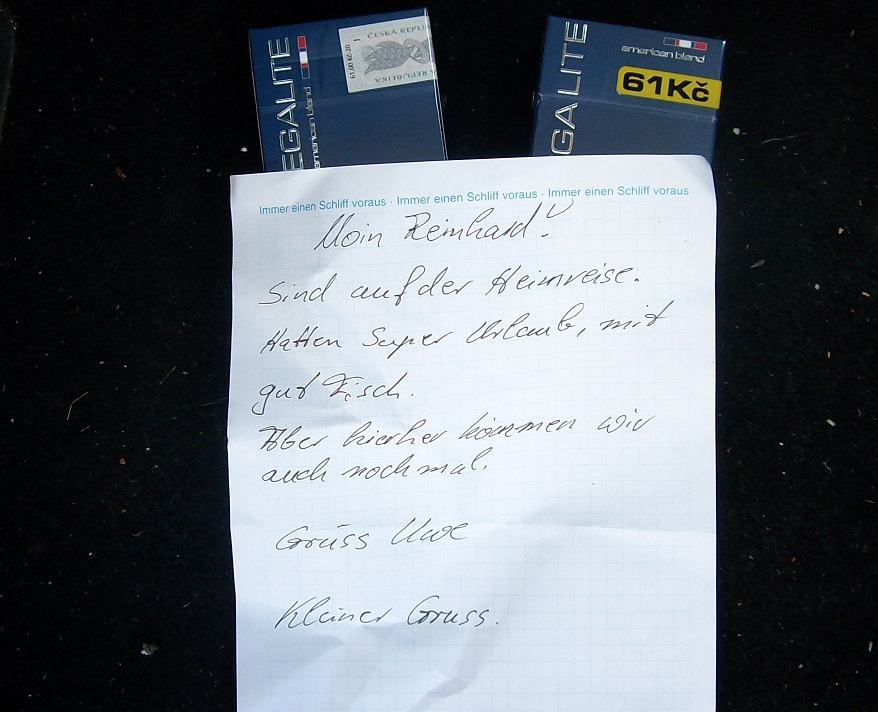 EGALITE
american blend
ČESKÁ REPU
REPUBLIKA
GA LITE
american blend
61Kč
Immer einen Schliff voraus · Immer einen Schliff voraus · Immer einen Schliff voraus
Moin Reinhard!
Sind auf der Heimreise.
Hatten Super Urlaub, mit
gut Fisch.
Aber hierher kommen wir
auch noch mal.
Gruss Uwe
Kleiner Gruss.